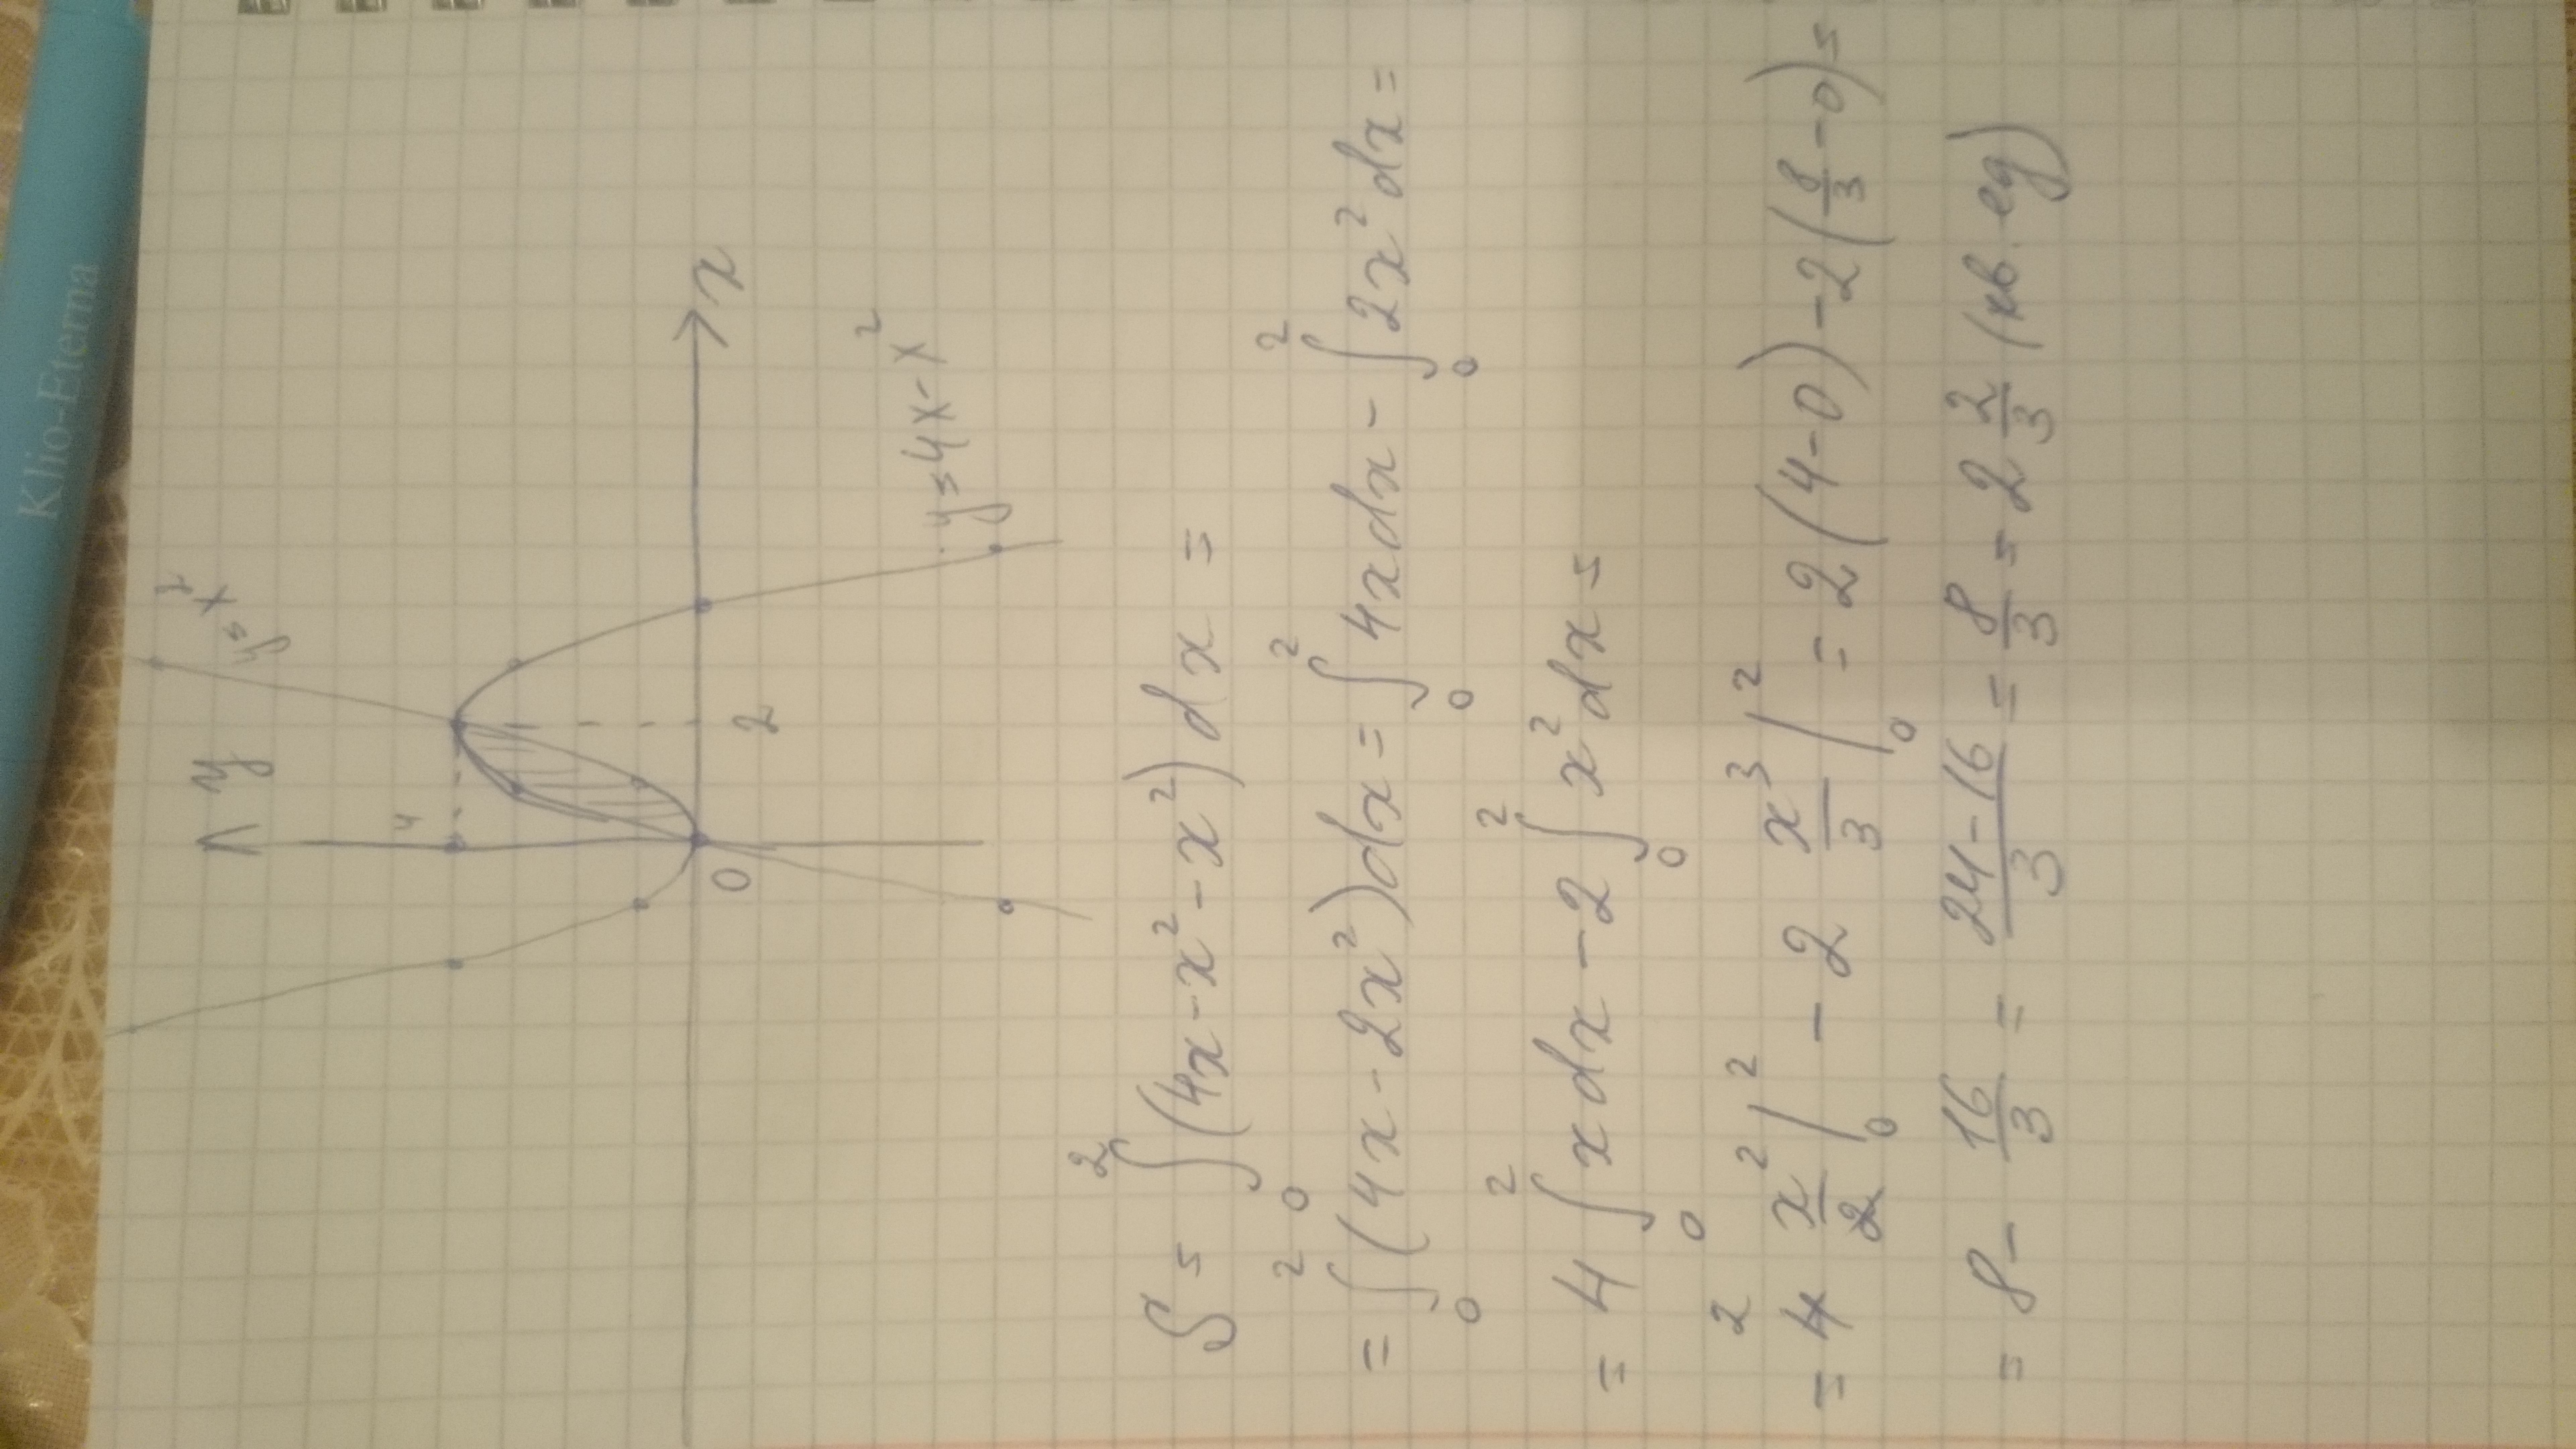 Klio-Eterna
y = x²
y
4
x
0
2
y = 4x - x²
S = ∫₀² (4x - x² - x²) dx =
= ∫₀² (4x - 2x²) dx = ∫₀² 4x dx - ∫₀² 2x² dx =
= 4 ∫₀² x dx - 2 ∫₀² x² dx =
= 4̸² x²/2̸ |₀² - 2 x³/3 |₀² = 2(4-0) - 2(8/3 - 0) =
= 8 - 16/3 = (24-16)/3 = 8/3 = 2 2/3 (кв. ед)